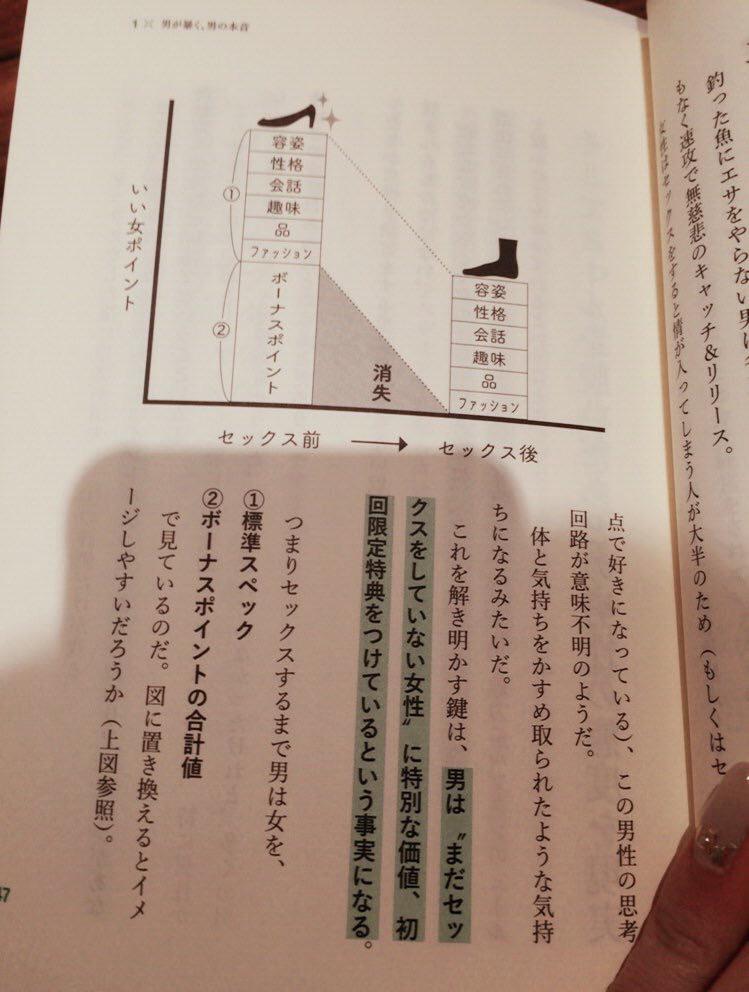 1 男が暴く、男の本音
釣った魚にエサをやらない男は
もなく速攻で無慈悲のキャッチ&リリース。
女性はセックスをすると情が入ってしまう人が大半のため(もしくはセ
いい女ポイント
①
容姿
性格
会話
趣味
品
ファッション
②
ボーナスポイント
消失
容姿
性格
会話
趣味
品
ファッション
セックス前
セックス後
点で好きになっている)、この男性の思考
回路が意味不明のようだ。
体と気持ちをかすめ取られたような気持
ちになるみたいだ。
これを解き明かす鍵は、男は〝まだセッ
クスをしていない女性〟に特別な価値、初
回限定特典をつけているという事実になる。
つまりセックスするまで男は女を、
①標準スペック
②ボーナスポイントの合計値
で見ているのだ。図に置き換えるとイメ
ージしやすいだろうか(上図参照)。
47